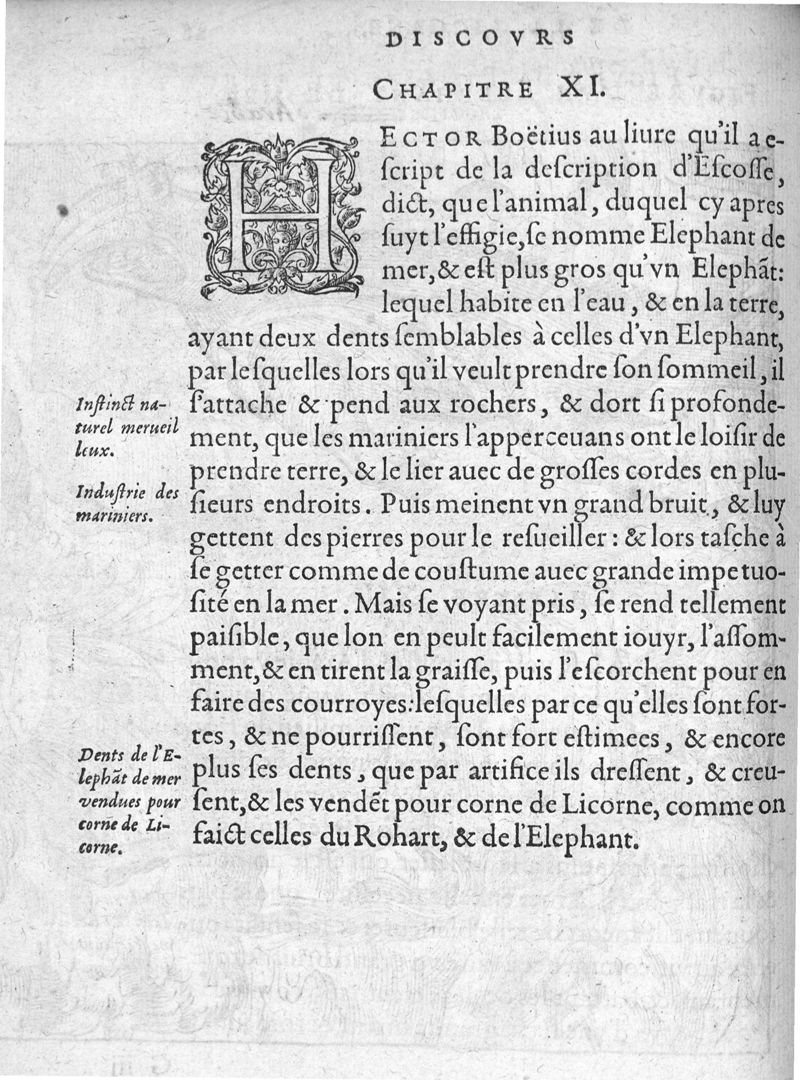 DISCOVRS
CHAPITRE XI.
HECTOR Boëtius au liure qu'il a e-
ſcript de la deſcription d'Eſcoſſe,
dict, que l'animal, duquel cy apres
ſuyt l'effigie, ſe nomme Elephant de
mer, & eſt plus gros qu'vn Elephãt:
lequel habite en l'eau, & en la terre,
ayant deux dents ſemblables à celles d'vn Elephant,
par leſquelles lors qu'il veult prendre ſon ſommeil, il
ſ'attache & pend aux rochers, & dort ſi profonde-
ment, que les mariniers l'apperceuans ont le loiſir de
prendre terre, & le lier auec de groſſes cordes en plu-
ſieurs endroits. Puis meinent vn grand bruit, & luy
gettent des pierres pour le reſueiller: & lors taſche à
ſe getter comme de couſtume auec grande impetuo-
ſité en la mer. Mais ſe voyant pris, ſe rend tellement
paiſible, que lon en peult facilement iouyr, l'aſſom-
ment, & en tirent la graiſſe, puis l'eſcorchent pour en
faire des courroyes: leſquelles par ce qu'elles ſont for-
tes, & ne pourriſſent, ſont fort eſtimees, & encore
plus ſes dents, que par artifice ils dreſſent, & creu-
ſent, & les vendẽt pour corne de Licorne, comme on
faict celles du Rohart, & de l'Elephant.
Inſtinct na-
turel merueil
leux.
Induſtrie des
mariniers.
Dents de l'E-
lephãt de mer
vendues pour
corne de Li-
corne.